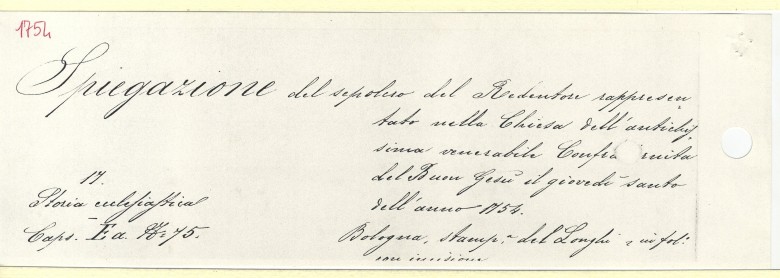 1754
Spiegazione del sepolcro del Redentore rappresen-
tato nella Chiesa dell'antichis-
sima venerabile Confra rnita
del Buon Gesù il giovedì santo
dell'anno 1754.
17.
Storia ecclesiastica
Caps. Ea. N.º 75.
Bologna, stamp.ª del Longhi, in fol.º
con incisione